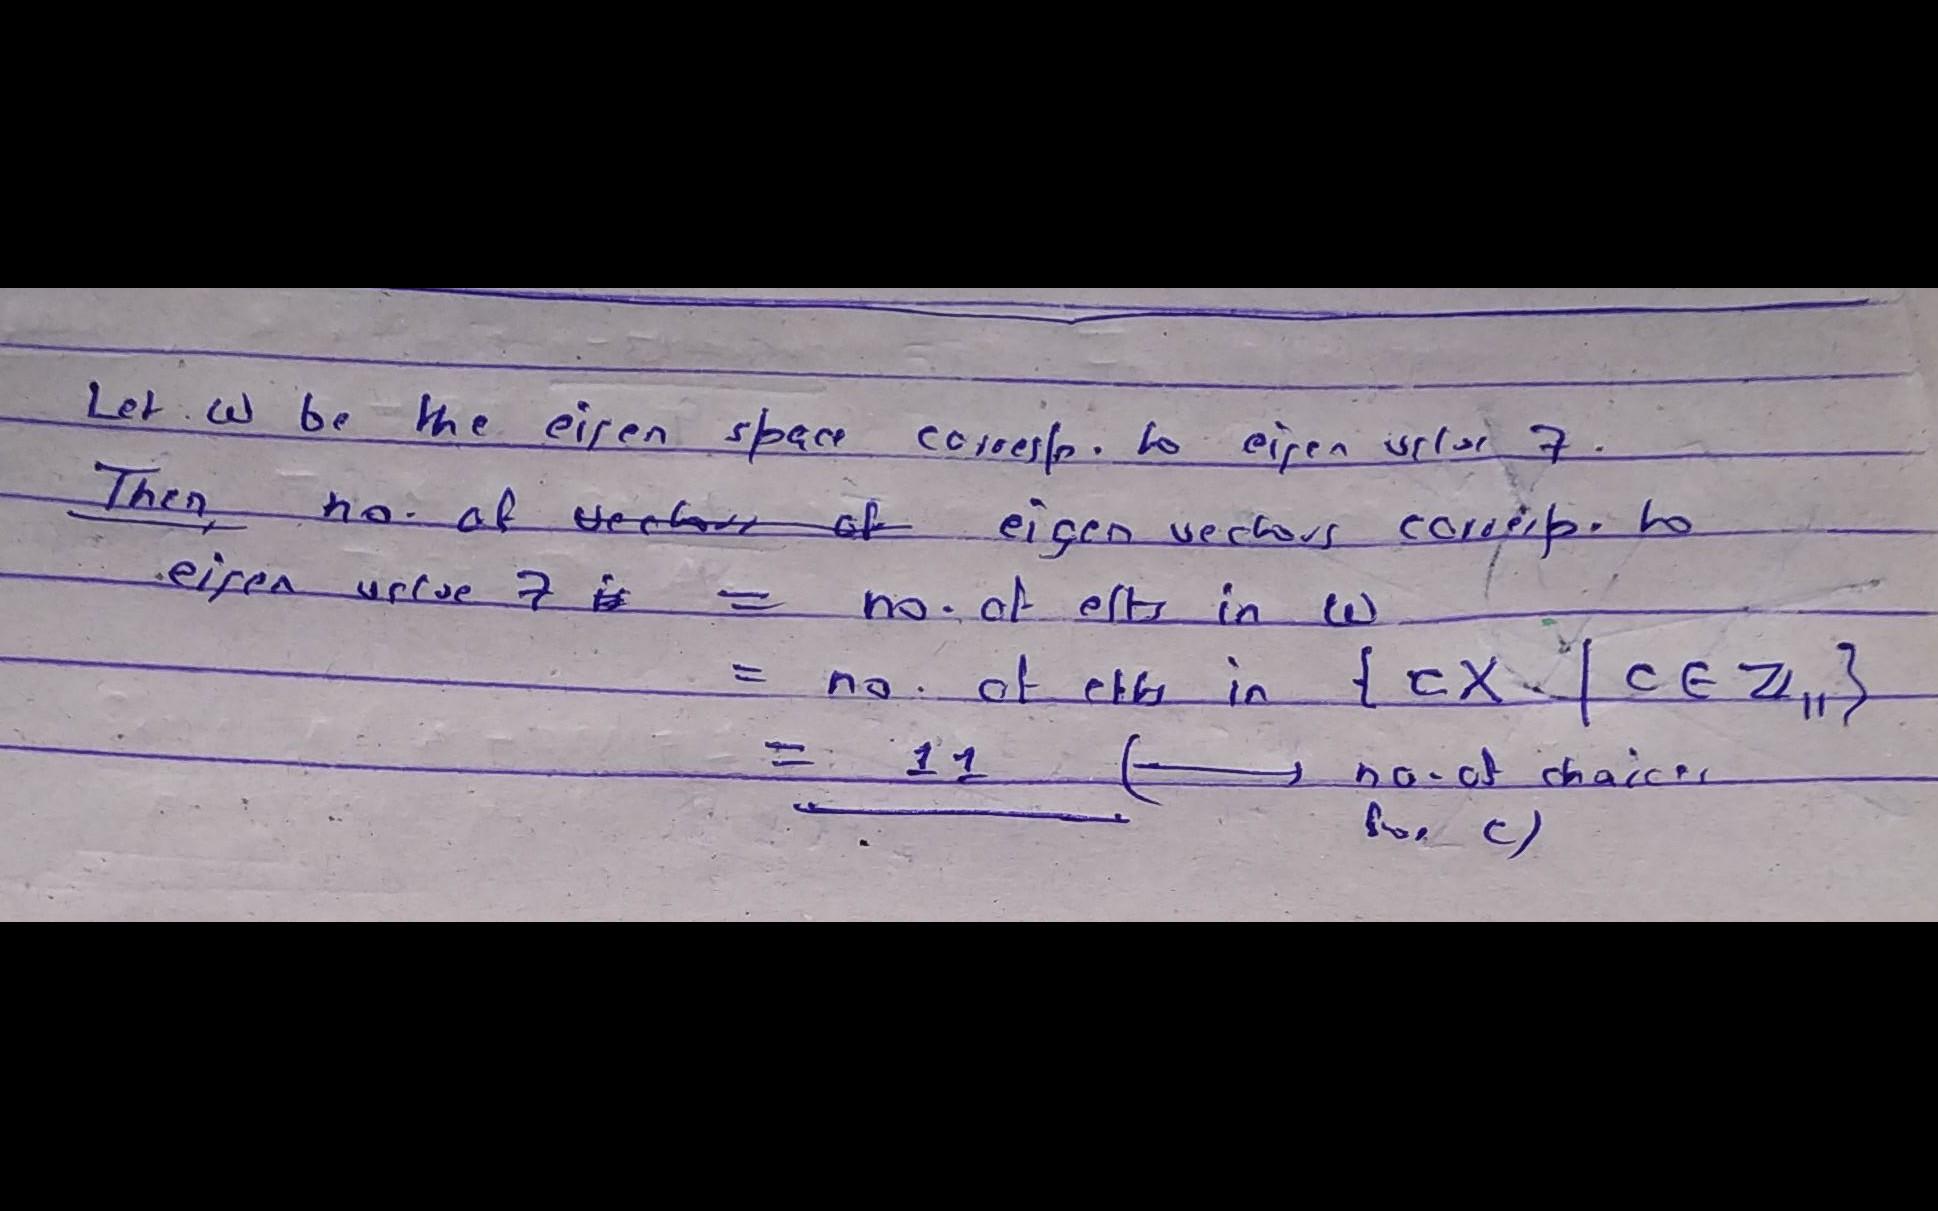 Let W be the eigen space corresp. to eigen value 7.
Then, no. of vectors of eigen vectors corresp. to
eigen value 7 is = no. of elts in W
= no. of elts in { cX | c ∈ ℤ₁₁}
= 11 (⟶ no. of choices
for c)